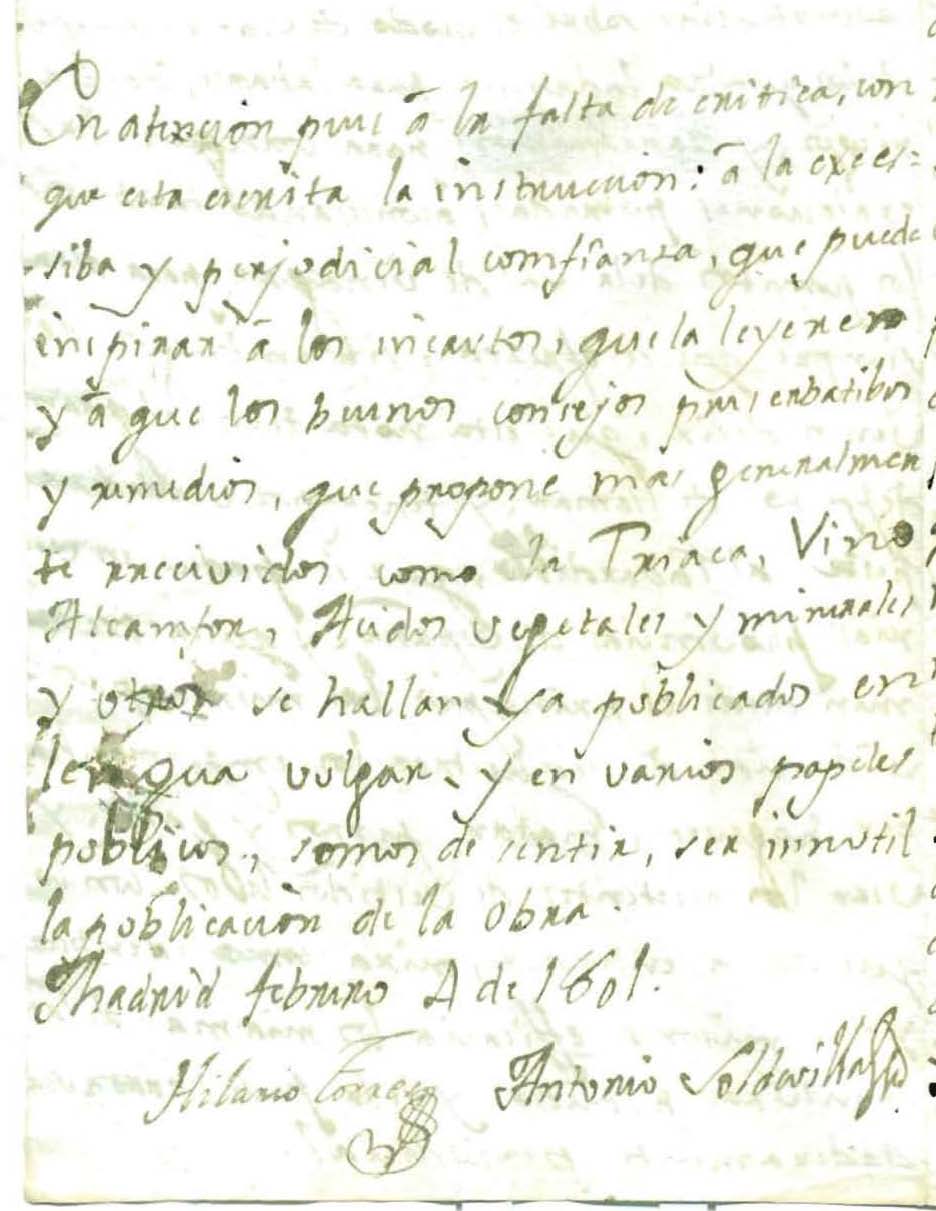 En atencion pues â la falta de critica, con
que esta escrita la instruccion: â la exces=
siba y perjodicial comfianza, que puede
inspirar â los incautos, que la leyeren
y â que los buenos consejos preserbatibos
y remedios, que propone mas generalmen
te rrecividos como la Triaca, Vino
Alcamfor, Acidos vegetales y minerales
y otros se hallan ya poblicados en
lengua vulgar, y en varios papeles
poblicos, somos de sentir, ser innutil
la poblicacion de la obra.
Madrid febrero 4 de 1801.
Hilario Torres Antonio